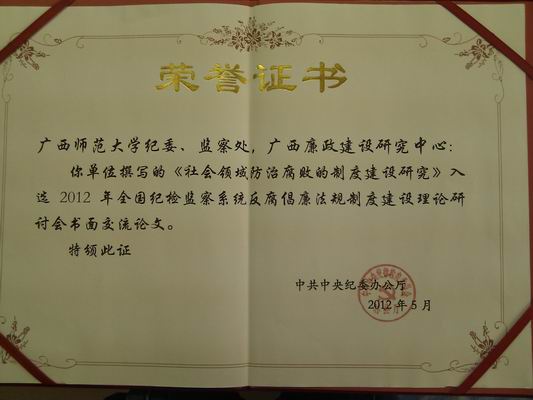 荣誉证书
广西师范大学纪委、监察处,广西廉政建设研究中心:
你单位撰写的《社会领域防治腐败的制度建设研究》入
选 2012 年全国纪检监察系统反腐倡廉法规制度建设理论研
讨会书面交流论文。
特颁此证
中共中央纪委办公厅
2012 年 5 月